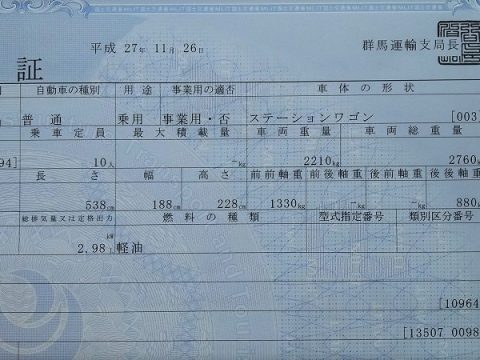 平成 27年 11月 26日 群馬運輸支局長
証
自動車の種別 用途 事業用の適否 車体の形状
普通 乗用 事業用・否 ステーションワゴン [003]
乗車定員 最大積載量 車両重量 車両総重量
94] 10人 －kg 2210kg 2760
長さ 幅 高さ 前前軸重 前後軸重 後前軸重 後後軸重
538cm 188cm 228cm 1330kg －kg －kg 880
総排気量又は定格出力 燃料の種類 型式指定番号 類別区分番号
kW
2.98L 軽油
[10964
[13507 0098